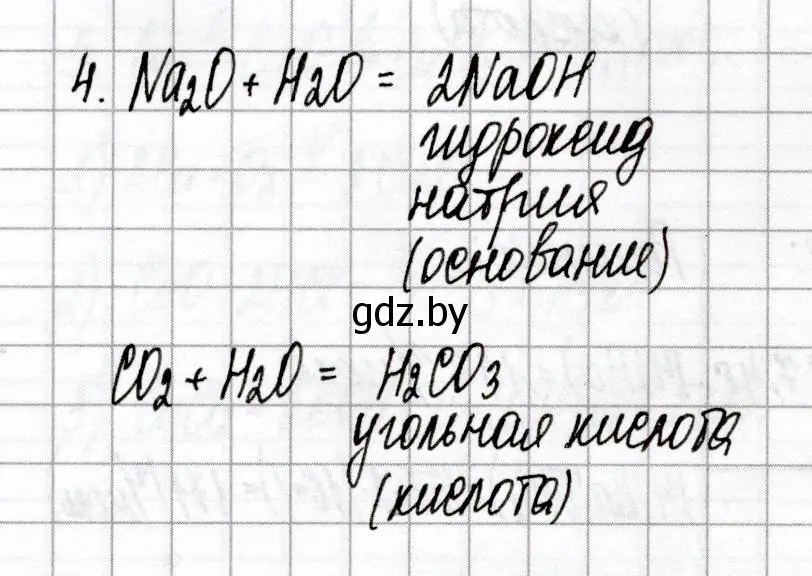 4. Na₂O + H₂O = 2NaOH
гидроксид
натрия
(основание)
gdz.by
CO₂ + H₂O = H₂CO₃
угольная кислота
(кислота)